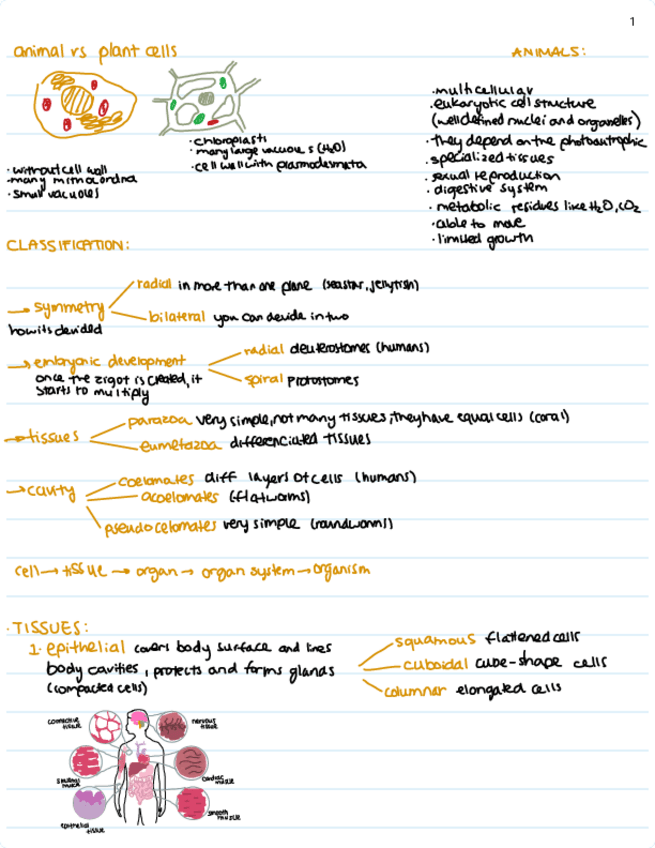 1
animal vs plant cells
· without cell wall
· many mithocondria
· small vacuoles
· chloroplasts
· many large vacuoles (H₂O)
· cell wall with plasmodesmata
ANIMALS:
· multicellular
· eukaryotic cell structure
(well defined nuclei and organelles)
· they depend on the photoautrophic
· specialized tissues
· sexual reproduction
· digestive system
· metabolic residues like H₂O, CO₂
· able to move
· limited growth
CLASSIFICATION:
→ symmetry
how its divided
radial in more than one plane (seastar, jellyfish)
bilateral you can devide in two
→ embryonic development
once the zigot is created, it
starts to multiply
radial deuterostomes (humans)
spiral protostomes
→ tissues
parazoa very simple, not many tissues, they have equal cells (coral)
eumetazoa differenciated tissues
→ cavity
coelomates diff layers of cells (humans)
acoelomates (flatworms)
pseudocelomates very simple (roundworms)
cell → tissue → organ → organ system → organism
· TISSUES:
1. epithelial covers body surface and lines
body cavities, protects and forms glands
(compacted cells)
squamous flattened cells
cuboidal cube-shape cells
columnar elongated cells
connective
tissue
nervous
tissue
skeletal
muscle
cardiac
muscle
epithelial
tissue
smooth
muscle